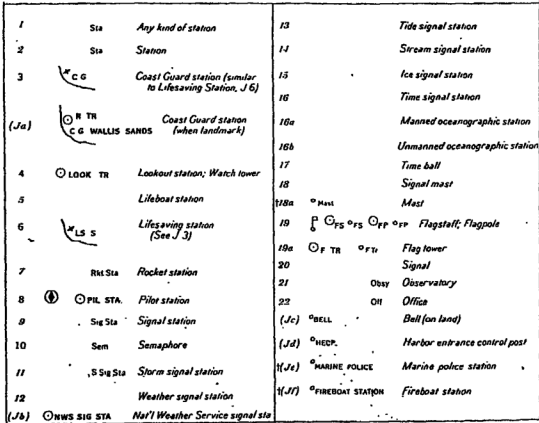 1 Sta Any kind of station
2 Sta Station
3 C G Coast Guard station (similar
to Lifesaving Station, J 6)
(Ja) R TR Coast Guard station
C G WALLIS SANDS (when landmark)
4 LOOK TR Lookout station; Watch tower
5 Lifeboat station
6 LS S Lifesaving station
(See J 3)
7 Rkt Sta Rocket station
8 PIL STA. Pilot station
9 Sig Sta Signal station
10 Sem Semaphore
11 S Sig Sta Storm signal station
12 Weather signal station
(Jb) NWS SIG STA Nat'l Weather Service signal sta
13 Tide signal station
14 Stream signal station
15 Ice signal station
16 Time signal station
16a Manned oceanographic station
16b Unmanned oceanographic station
17 Time ball
18 Signal mast
†18a Mast Mast
19 FS FS FP FP Flagstaff; Flagpole
19a F TR F Tr Flag tower
20 Signal
21 Obsy Observatory
22 Off Office
(Jc) BELL Bell (on land)
(Jd) HECP. Harbor entrance control post
†(Je) MARINE POLICE Marine police station
†(Jf) FIREBOAT STATION Fireboat station